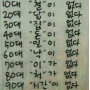 10대 "철"이 없다
20대 "답"이 없다
30대 "집"이 없다
40대 "돈"이 없다
50대 "일"이 없다
60대 "낙"이 없다
70대 "이"가 없다
80대 "처"가 없다
90대 "시간"이 없다